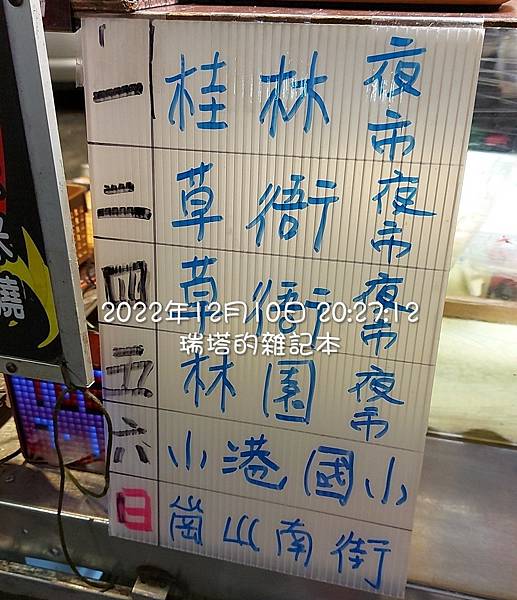 二 桂林夜市
三 草衙夜市
四 草衙夜市
五 林園夜市
六 小港國小
日 崗山南街
2022年12月10日 20:27:12
瑞塔的雜記本
燒